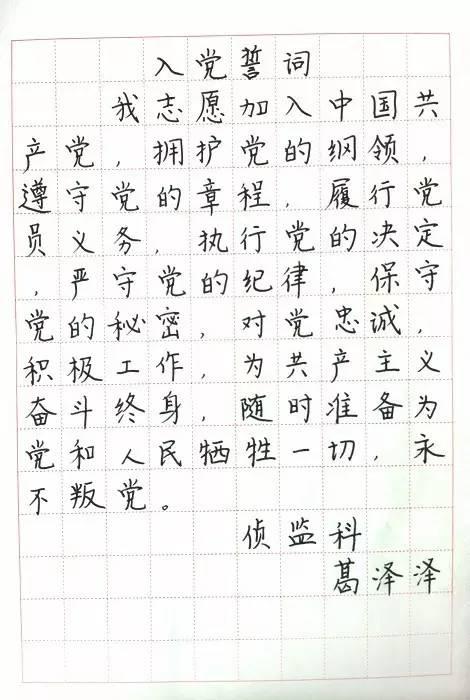 入党誓词
我志愿加入中国共
产党，拥护党的纲领，
遵守党的章程，履行党
员义务，执行党的决定
，严守党的纪律，保守
党的秘密，对党忠诚，
积极工作，为共产主义
奋斗终身，随时准备为
党和人民牺牲一切，永
不叛党。
侦监科
葛泽泽